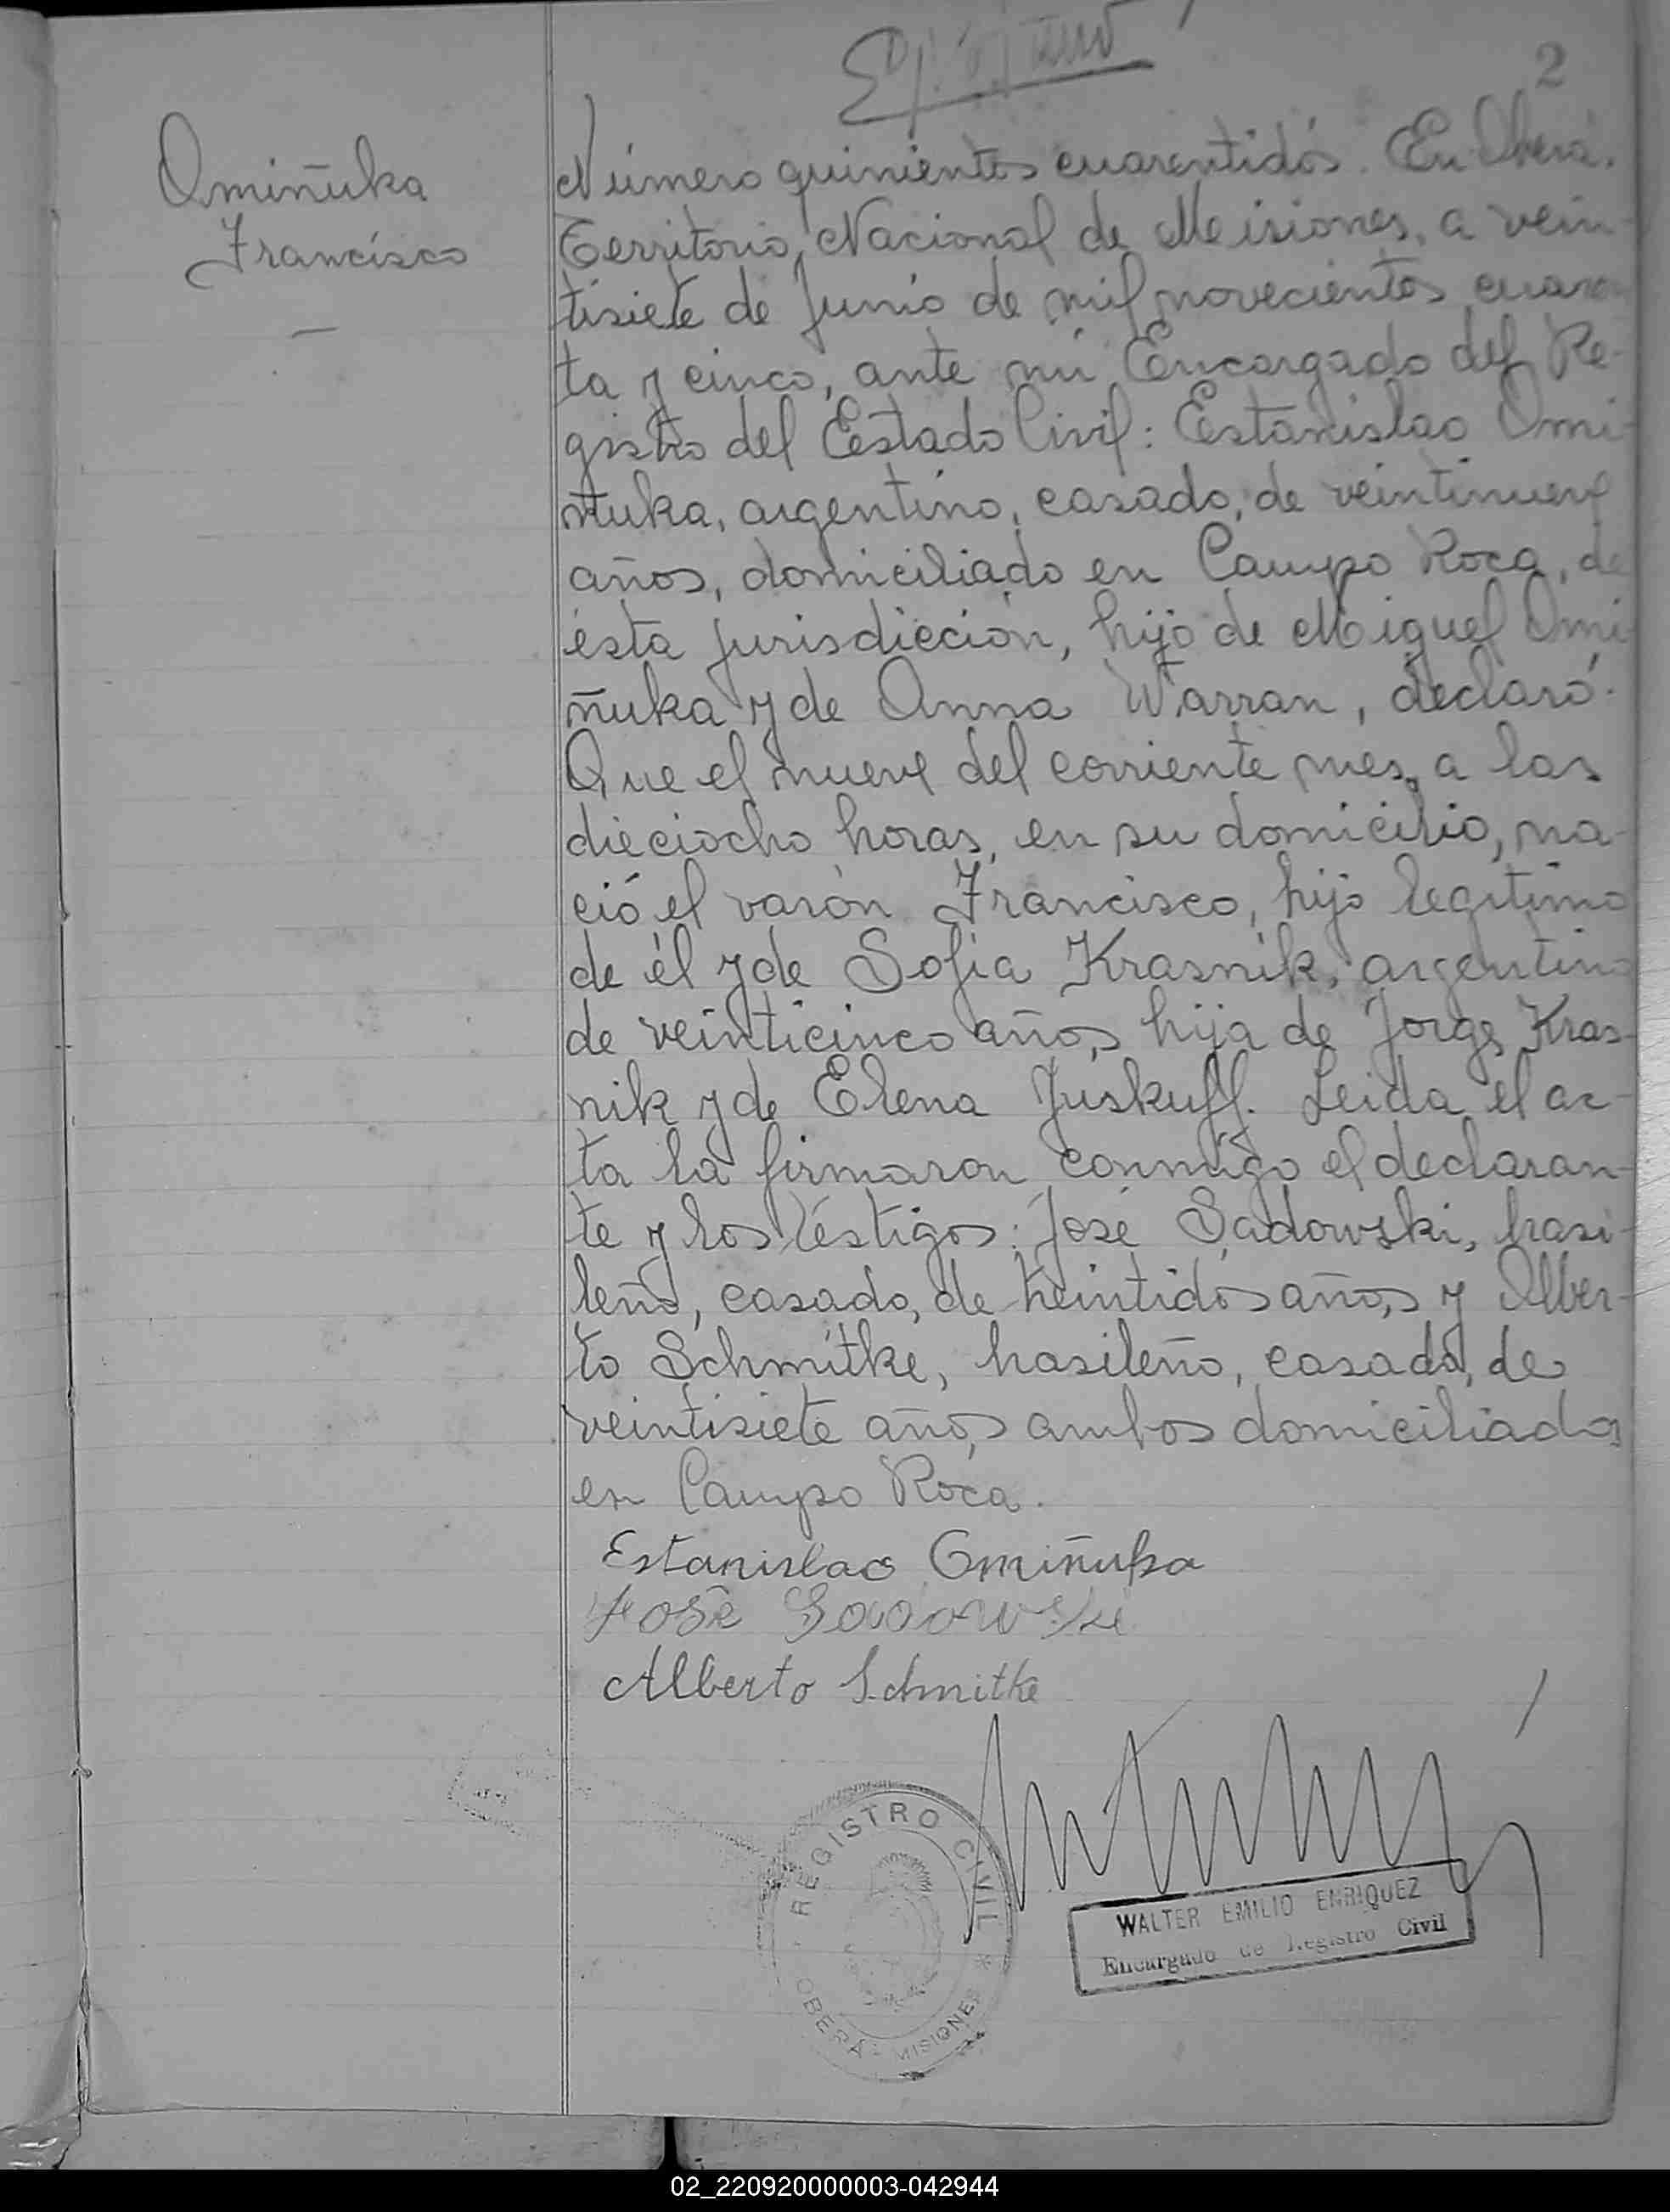 2
Omiñuka
Francisco
Número quinientos cuarentidós. En Oberá,
Territorio Nacional de Misiones, a vein-
tisiete de Junio de mil novecientos cuaren
ta y cinco, ante mi Encargado del Re-
gistro del Estado Civil: Estanislao Omi-
ñuka, argentino, casado, de veintinueve
años, domiciliado en Campo Roca, de
ésta jurisdicción, hijo de Miguel Omi-
ñuka y de Anna Warran, declaró:
Que el nueve del corriente mes, a las
dieciocho horas, en su domicilio, na-
ció el varón Francisco, hijo legítimo
de él y de Sofía Krasnik, argentina
de veinticinco años, hija de Jorge Kras-
nik y de Elena Juskuff. Leida el ac-
ta la firmaron conmigo el declaran-
te y los téstigos: José Sadowski, brasi-
leño, casado, de treintidós años, y Alber-
to Schmitke, brasileño, casado, de
veintisiete años, ambos domiciliados
en Campo Roca.
Estanislao Omiñuka
José Sadowski
Alberto Schmitke
REGISTRO CIVIL
OBERÁ - MISIONES
WALTER EMILIO ENRIQUEZ
Encargado de Registro Civil
02_220920000003-042944